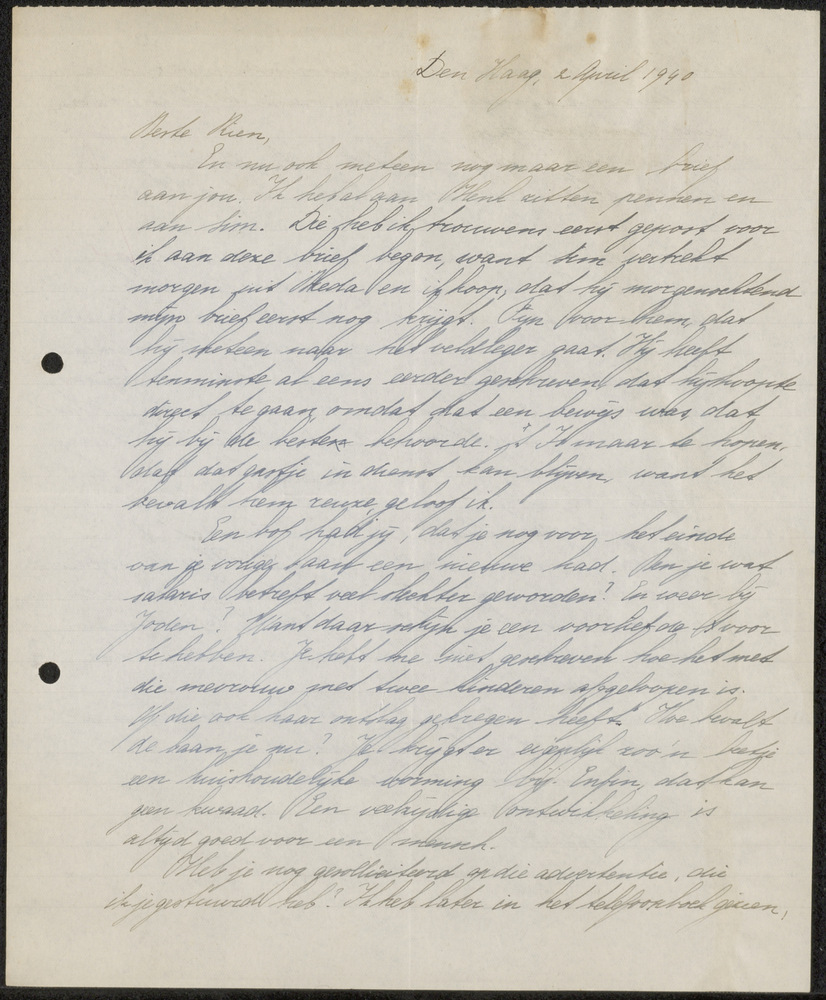 Den Haag, 2 April 1940
Beste Rien,
En nu ook meteen nog maar een brief
aan jou. Ik heb al aan Henk zitten pennen en
aan Sim. Die heb ik trouwens eerst gepost voor
ik aan deze brief begon, want Sim vertrekt
morgen uit Breda en ik hoop, dat hij morgenochtend
mijn brief eerst nog krijgt. Fijn voor hem, dat
hij meteen naar het veldleger gaat. Hij heeft
tenminste al eens eerder geschreven dat hij hoopte
direct te gaan, omdat dat een bewijs was, dat
hij bij de besten behoorde. 't Is maar te hopen,
dat dat gastje in dienst kan blijven, want het
bevalt hem reuze, geloof ik.
Een bof had jij, dat je nog voor het einde
van je vorige baan een nieuwe had. Ben je wat
salaris betreft veel slechter geworden? En weer bij
Joden? Want daar schijn je een voorliefde voor
te hebben. Je hebt me niet geschreven hoe het met
die mevrouw met twee kinderen afgelopen is.
Of die ook haar ontslag gekregen heeft. Hoe bevalt
de baan je nu? Je krijgt er eigenlijk zoo'n beetje
een huishoudelijke vorming bij. Enfin, dat kan
geen kwaad. Een veelzijdige ontwikkeling is
altijd goed voor een mensch.
Heb je nog gesolliciteerd op die advertentie, die
ik je gestuurd heb? Ik heb later in het telefoonboek gezien,